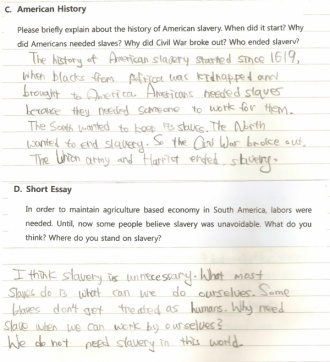 C. American History
Please briefly explain about the history of American slavery. When did it start? Why
did Americans needed slaves? Why did Civil War broke out? Who ended slavery?
The history of American slavery started since 1619,
when blacks from Africa was kidnapped and
brought to America. Americans needed slaves
because they needed someone to work for them.
The South wanted to keep slave. The North
wanted to end slavery. So the Civil War broke out.
The Union army and Harriet ended slavery.
D. Short Essay
In order to maintain agriculture based economy in South America, labors were
needed. Until, now some people believe slavery was unavoidable. What do you
think? Where do you stand on slavery?
I think slavery is unnecessary. What most
slaves do is what can we do ourselves. Some
slaves don't get treated as humans. Why need
slave when we can work by ourselves?
We do not need slavery in this world.